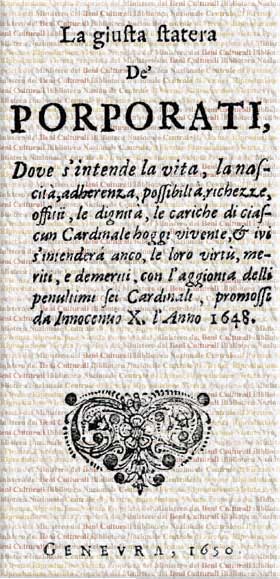 La giusta statera
De'
PORPORATI,
Dove s'intende la vita, la nas-
cità, adherenza, possibilità, richezze,
offitii, le dignità, le cariche di cias-
cun Cardinale hoggi vivente, & ivi
s'intenderà anco, le loro virtù, me-
riti, e demeriti, con l'aggionta delli
penultimi sei Cardinali, promossi
da Innocentio X. l'Anno 1648.
GENEVRA, 1650.